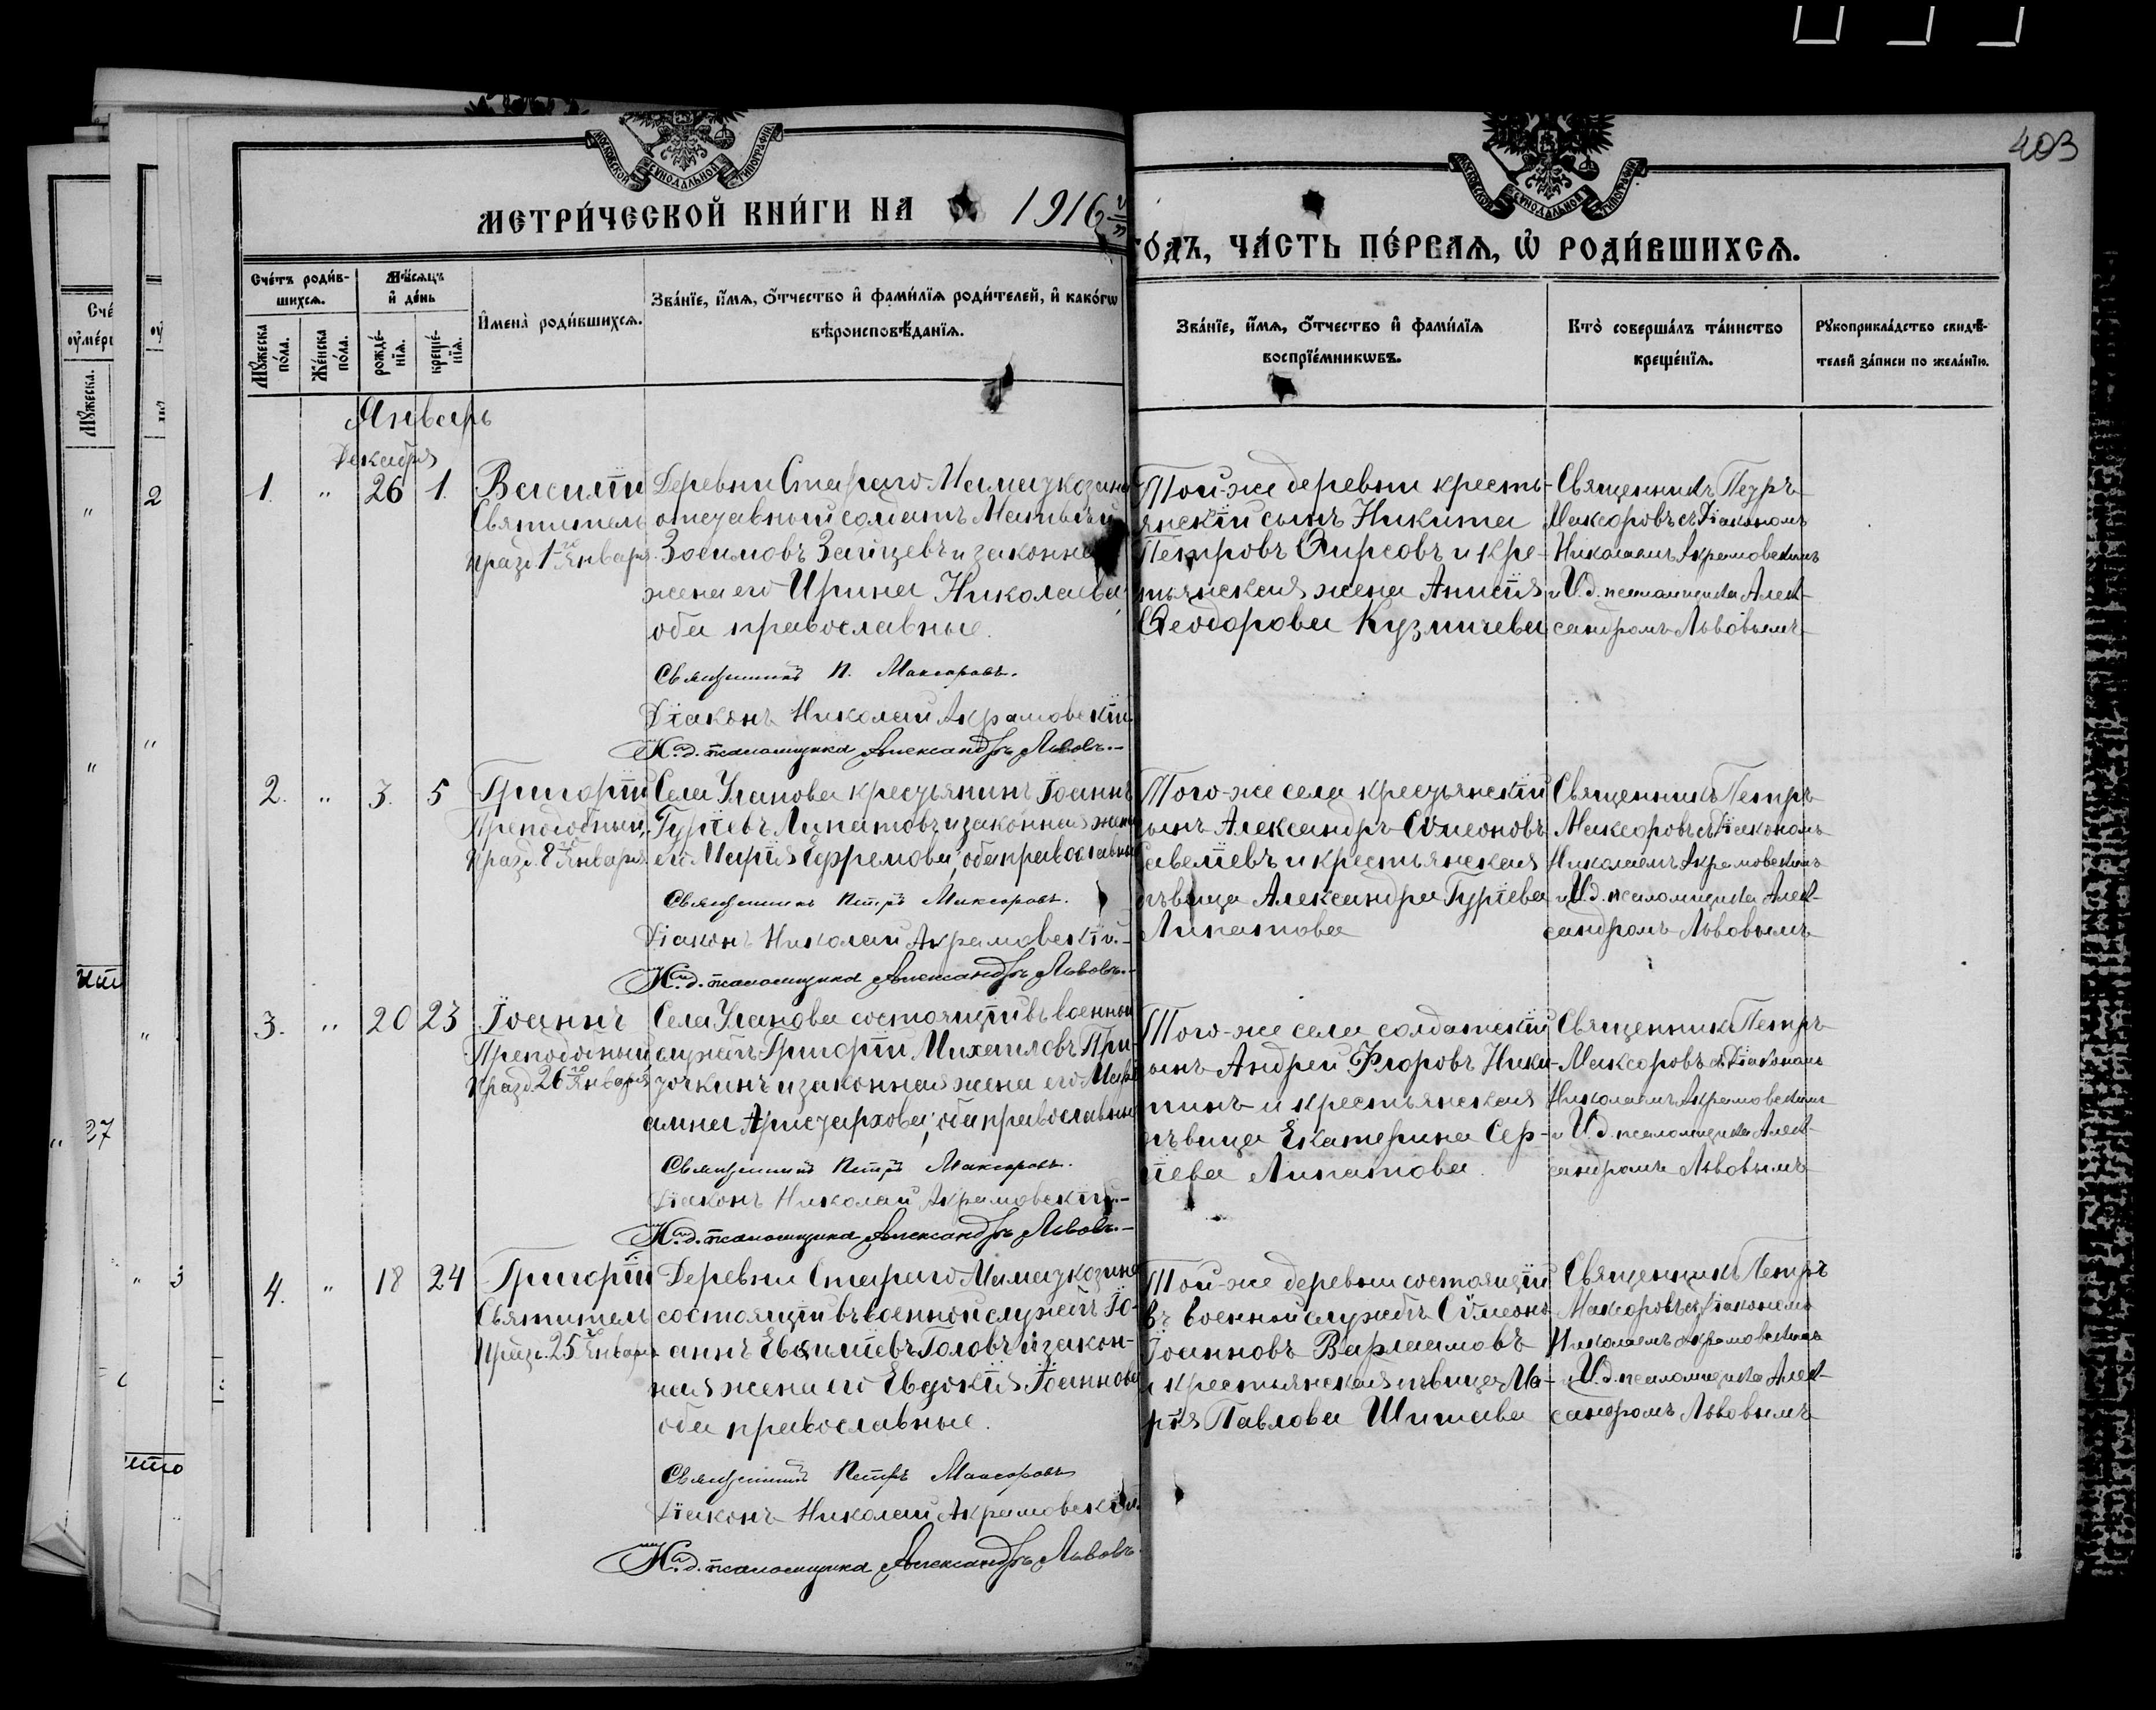 403
МОСКОВСКОЙ СУНОДАЛЬНОЙ ТИПОГРАФІИ
МОСКОВСКОЙ СУНОДАЛЬНОЙ ТИПОГРАФІИ
МЕТРИ́ЧЕСКОЙ КНИ́ГИ НА 1916
ГО́ДЪ, ЧА́СТЬ ПЕ́РВАѦ, Ѿ РОДИ́ВШИХСѦ.
Сче́тъ роди́в-
шихсѧ.
Мѣ́сѧцъ
и҆ де́нь
Мꙋ́жеска по́ла.
Же́нска по́ла.
рожде́-нїѧ.
креще́-нїѧ.
И҆мена̀ роди́вшихсѧ.
Зва́нїе, и҆́мѧ, ѻ҆́тчество и҆ фами́лїѧ роди́телей, и҆ како́гѡ
вѣроисповѣ́данїѧ.
Зва́нїе, и҆́мѧ, ѻ҆́тчество и҆ фами́лїѧ
воспрїе́мникѡвъ.
Кто̀ соверша́лъ та́инство
креще́нїѧ.
Рꙋкоприкла́дство свидѣ́-
телей за́писи по жела́нїю.
Январь
Декабря
1. " 26 1.
Василій
Святитель
празд. 1го Января.
Деревни Стараго Мамазкозина
отставный солдатъ Матвѣй
Зосимовъ Зайцевъ и законная
жена его Ирина Николаева,
оба православные.
Священникъ П. Максоровъ.
Діаконъ Николай Акрамовскій
И. д. псаломщика Александръ Львовъ.
Той-же деревни кресть-
янскій сынъ Никита
Петровъ Ѳирсовъ и кре-
стьянская жена Анисія
Ѳеодорова Кузмичева
Священникъ Петръ
Максоровъ съ Діакономъ
Николаемъ Акрамовскимъ
и И. д. псаломщика Алек-
сандромъ Львовымъ
2. " 3. 5
Григорій
Преподобный,
празд. 8го Января.
Села Уланова крестьянинъ Іоаннъ
Гуріевъ Липатовъ и законная жена
его Марія Ефремова; оба православные
Священникъ Петръ Максоровъ.
Діаконъ Николай Акрамовскій.
И. д. псаломщика Александръ Львовъ.
Того-же села крестьянскій
сынъ Александръ Сѵмеоновъ
Савеліевъ и крестьянская
дѣвица Александра Гуріева
Липатова
Священникъ Петръ
Максоровъ съ Діакономъ
Николаемъ Акрамовскимъ
и И. д. псаломщика Алек-
сандромъ Львовымъ
3. " 20 23
Іоаннъ
Преподобный
празд. 26го Января
Села Уланова состоящій въ военной
службѣ Григорій Михаиловъ При-
зочкинъ и законная жена его Мав-
Аристархова; оба православные
Священникъ Петръ Максоровъ.
Діаконъ Николай Акрамовскій.
И. д. псаломщика Александръ Львовъ.
Того-же села солдатскій
сынъ Андрей Флоровъ Ники-
тинъ и крестьянская
дѣвица Екатерина Сер-
гіева Липатова.
Священникъ Петръ
Максоровъ съ Діакономъ
Николаемъ Акрамовскимъ
и И. д. псаломщика Алек-
сандромъ Львовымъ
4. " 18 24
Григорій
Святитель
празд. 25го Января
Деревни Стараго Мамазкозина
состоящій въ военной службѣ Іо-
аннъ Василіевъ Головъ и закон-
ная жена его Евдокія Іоаннова
оба православные.
Священникъ Петръ Максоровъ
Діаконъ Николай Акрамовскій.
И. д. псаломщика Александръ Львовъ.
Той-же деревни состоящій
въ военной службѣ Сѵмеонъ
Іоанновъ Варлаамовъ
и крестьянская дѣвица Ма-
рія Павлова Шитова
Священникъ Петръ
Максоровъ съ Діакономъ
Николаемъ Акрамовскимъ
и И. д. псаломщика Алек-
сандромъ Львовымъ